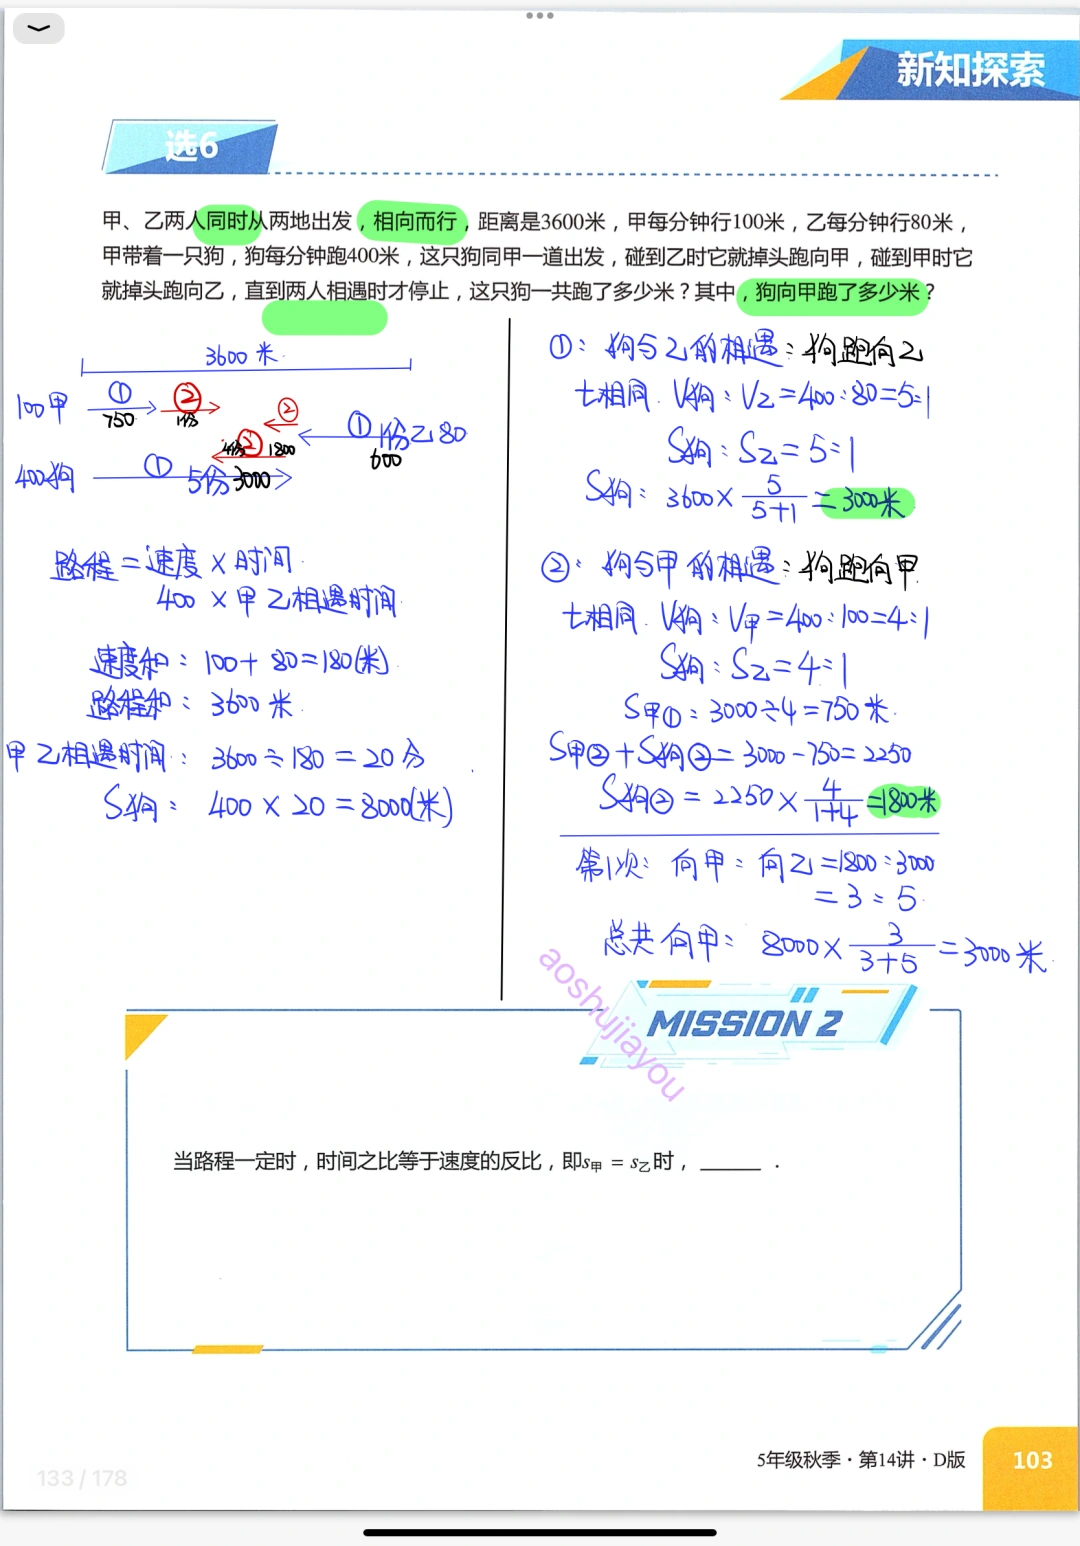 新知探索
选6
甲、乙两人同时从两地出发，相向而行，距离是3600米，甲每分钟行100米，乙每分钟行80米，
甲带着一只狗，狗每分钟跑400米，这只狗同甲一道出发，碰到乙时它就掉头跑向甲，碰到甲时它
就掉头跑向乙，直到两人相遇时才停止，这只狗一共跑了多少米？其中，狗向甲跑了多少米？
3600米
100甲 ① 750 ② 1份 ② ① 1份 乙80
600
4份 ② 1800
400狗 ① 5份 3000
路程=速度×时间
400×甲乙相遇时间
速度和：100+80=180(米)
路程和：3600米
甲乙相遇时间：3600÷180=20分
S狗：400×20=8000(米)
①：狗与乙的相遇：狗跑向乙
t相同. V狗：V乙=400:80=5:1
S狗：S乙=5:1
S狗：3600×5/(5+1)=3000米
②：狗与甲的相遇：狗跑向甲
t相同. V狗：V甲=400:100=4:1
S狗：S乙=4:1
S甲①：3000÷4=750米.
S甲②+S狗②=3000-750=2250
S狗②=2250×4/(1+4)=1800米
第1次：向甲：向乙=1800:3000
=3:5.
总共向甲：8000×3/(3+5)=3000米.
aoshujiayou
MISSION 2
当路程一定时，时间之比等于速度的反比，即s甲 = s乙时，_____ .
5年级秋季·第14讲·D版
103
133 / 178